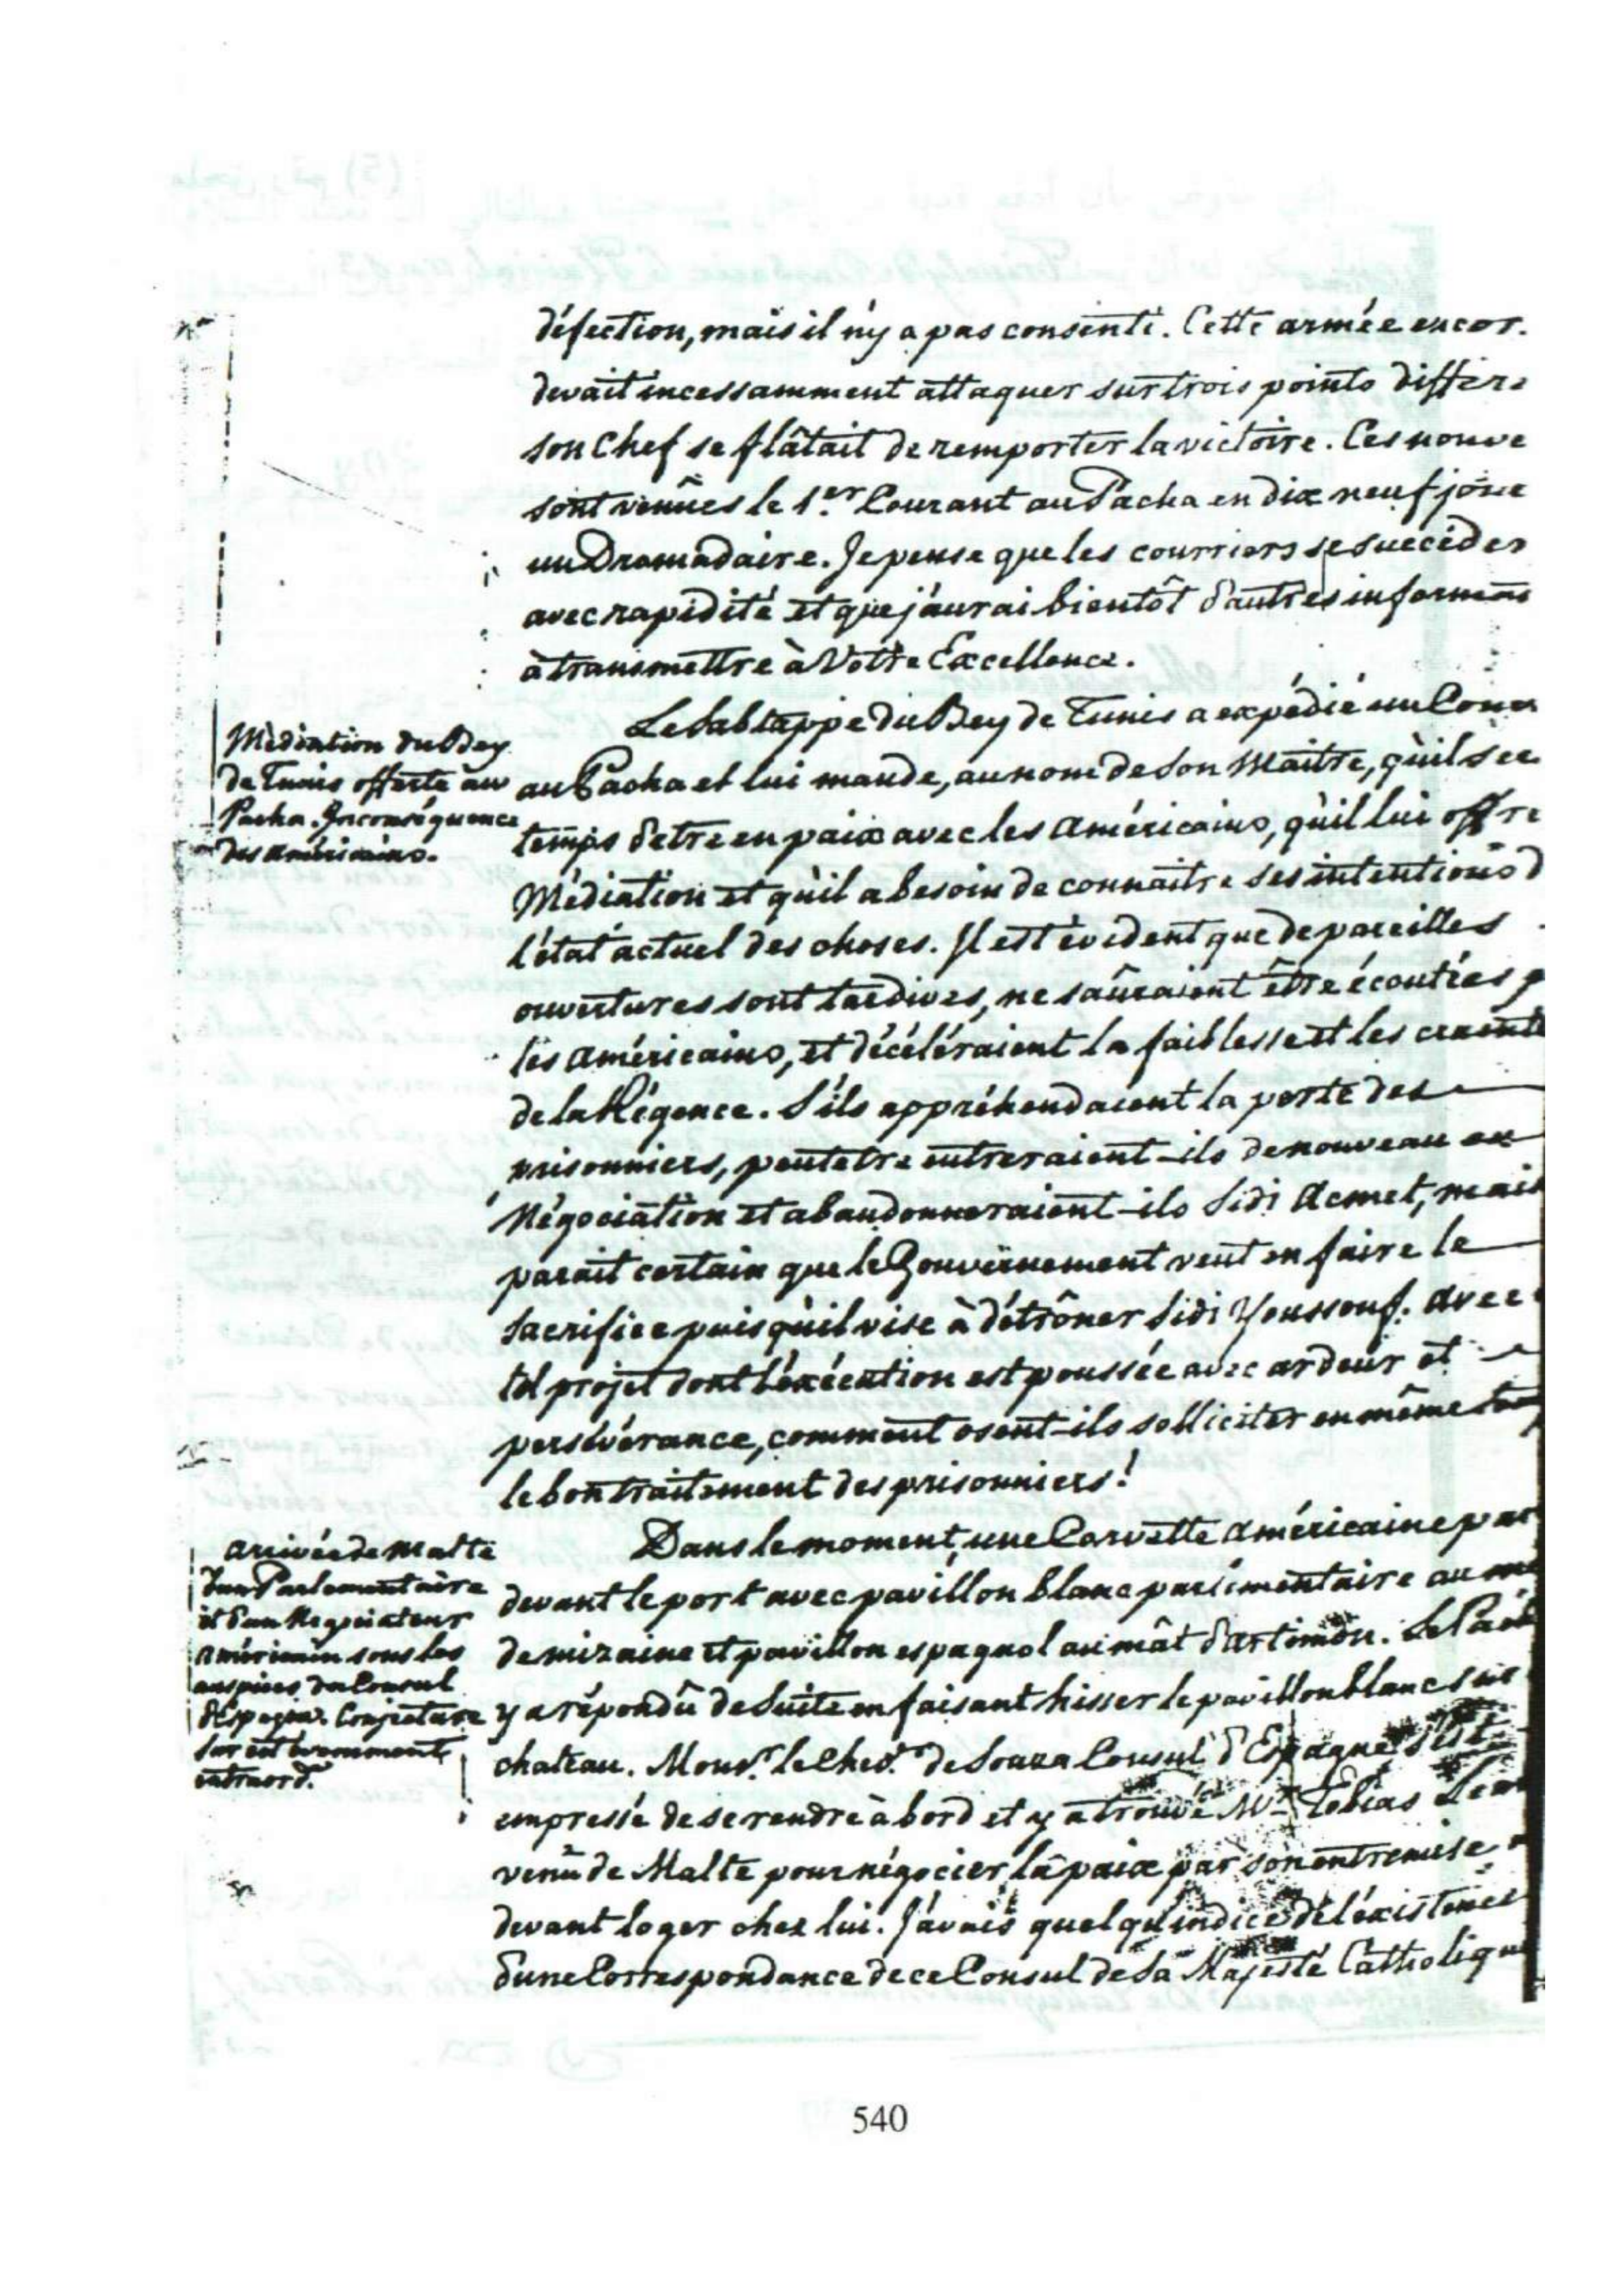 défection, mais il n'y a pas consenti. Cette armée encor.
devait incessamment attaquer sur trois points differe
son Chef se flâtait de remporter la victoire. Ces nouve
sont venües le 1.er Courant au Pacha en dix neuf jour
un Dromadaire. Je pense que les courriers se succéder
avec rapidité et que j'aurai bientôt d'autres informaõns
à transmettre à Votre Excellence.
Médiation du Bey
de Tunis offerte au
Pacha. Inconséquence
des américains.
Le Sabtappe du Bey de Tunis a expédié un Cour
au Pacha et lui mande, au nom de Son Maitre, qu'il se
temps d'etre en paix avec les américains, qu'il lui offre
Médiation et qu'il a besoin de connaitre ses intentions d
l'état actuel des choses. Il est évident que de pareilles
ouvertures sont tardives, ne sauraient être écoutées p
les américains, et décéléraient la faiblesse et les craint
de la Régence. S'ils appréhendaient la perte des
prisonniers, peutetre entreraient-ils de nouveau en
Négociation et abandonneraient-ils Sidi Acmet, mais
parait certain que le Gouvernement veut en faire le
Sacrifice puisqu'il vise à détrôner Sidi Youssouf. avec
tel projet dont l'éxécution est poussée avec ardeur et
persévérance, comment osent-ils solliciter en même
le bon traitement des prisonniers!
arrivée de Malte
d'un Parlementaire
et d'un Negociateur
américain sous les
auspices du Consul
d'Espagne. Conjecture
sur cet evenement
extraord.re
Dans le moment, une Corvette américaine par
devant le port avec pavillon blanc parlementaire au
de mizaine et pavillon espagnol au mât d'artimon. Le Pach
y a répondû de Suite en faisant hisser le pavillon blanc sur
chateau. Mons.r le Chev.r de Souza Consul d'Espagne s'est
empressé de se rendre à bord et y a trouvé M.r Tobias Lear
venû de Malte pour négocier la paix par son entremise
devant loger chez lui. J'avais quelqu'indice de l'éxistence
d'une Correspondance de ce Consul de Sa Majesté Catholique
540